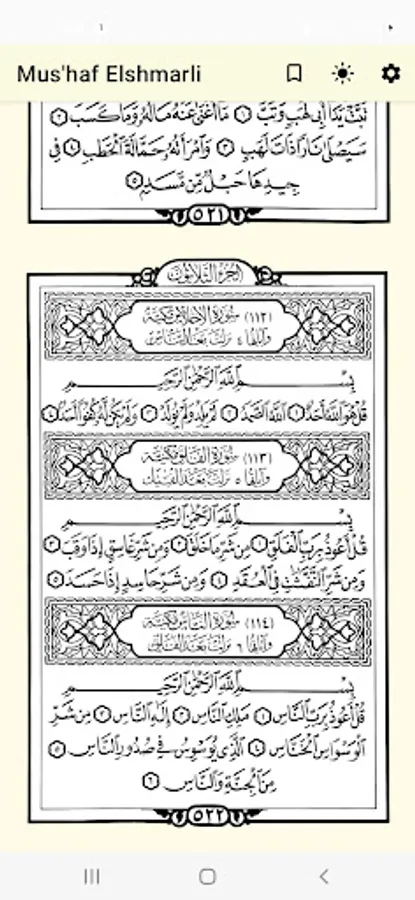 Mus'haf Elshmarli
تَبَّتْ يَدَآ أَبِي لَهَبٍ وَتَبَّ ١ مَآ أَغْنَىٰ عَنْهُ مَالُهُۥ وَمَا كَسَبَ ٢
سَيَصْلَىٰ نَارًا ذَاتَ لَهَبٍ ٣ وَٱمْرَأَتُهُۥ حَمَّالَةَ ٱلْحَطَبِ ٤ فِي
جِيدِهَا حَبْلٌ مِّن مَّسَدٍ ٥
٥٢١
الجزء الثلاثون
(١١٢) سورة الإخلاص مكية
وآياتها ٤ نزلت بعد الناس
بِسْمِ ٱللَّهِ ٱلرَّحْمَٰنِ ٱلرَّحِيمِ
قُلْ هُوَ ٱللَّهُ أَحَدٌ ١ ٱللَّهُ ٱلصَّمَدُ ٢ لَمْ يَلِدْ وَلَمْ يُولَدْ ٣ وَلَمْ يَكُن لَّهُۥ كُفُوًا أَحَدٌ ٤
(١١٣) سورة الفلق مكية
وآياتها ٥ نزلت بعد الفيل
بِسْمِ ٱللَّهِ ٱلرَّحْمَٰنِ ٱلرَّحِيمِ
قُلْ أَعُوذُ بِرَبِّ ٱلْفَلَقِ ١ مِن شَرِّ مَا خَلَقَ ٢ وَمِن شَرِّ غَاسِقٍ إِذَا وَقَبَ ٣
وَمِن شَرِّ ٱلنَّفَّٰثَٰتِ فِي ٱلْعُقَدِ ٤ وَمِن شَرِّ حَاسِدٍ إِذَا حَسَدَ ٥
(١١٤) سورة الناس مكية
وآياتها ٦ نزلت بعد الفلق
بِسْمِ ٱللَّهِ ٱلرَّحْمَٰنِ ٱلرَّحِيمِ
قُلْ أَعُوذُ بِرَبِّ ٱلنَّاسِ ١ مَلِكِ ٱلنَّاسِ ٢ إِلَٰهِ ٱلنَّاسِ ٣ مِن شَرِّ
ٱلْوَسْوَاسِ ٱلْخَنَّاسِ ٤ ٱلَّذِي يُوَسْوِسُ فِي صُدُورِ ٱلنَّاسِ ٥
مِنَ ٱلْجِنَّةِ وَٱلنَّاسِ ٦
٥٢٢